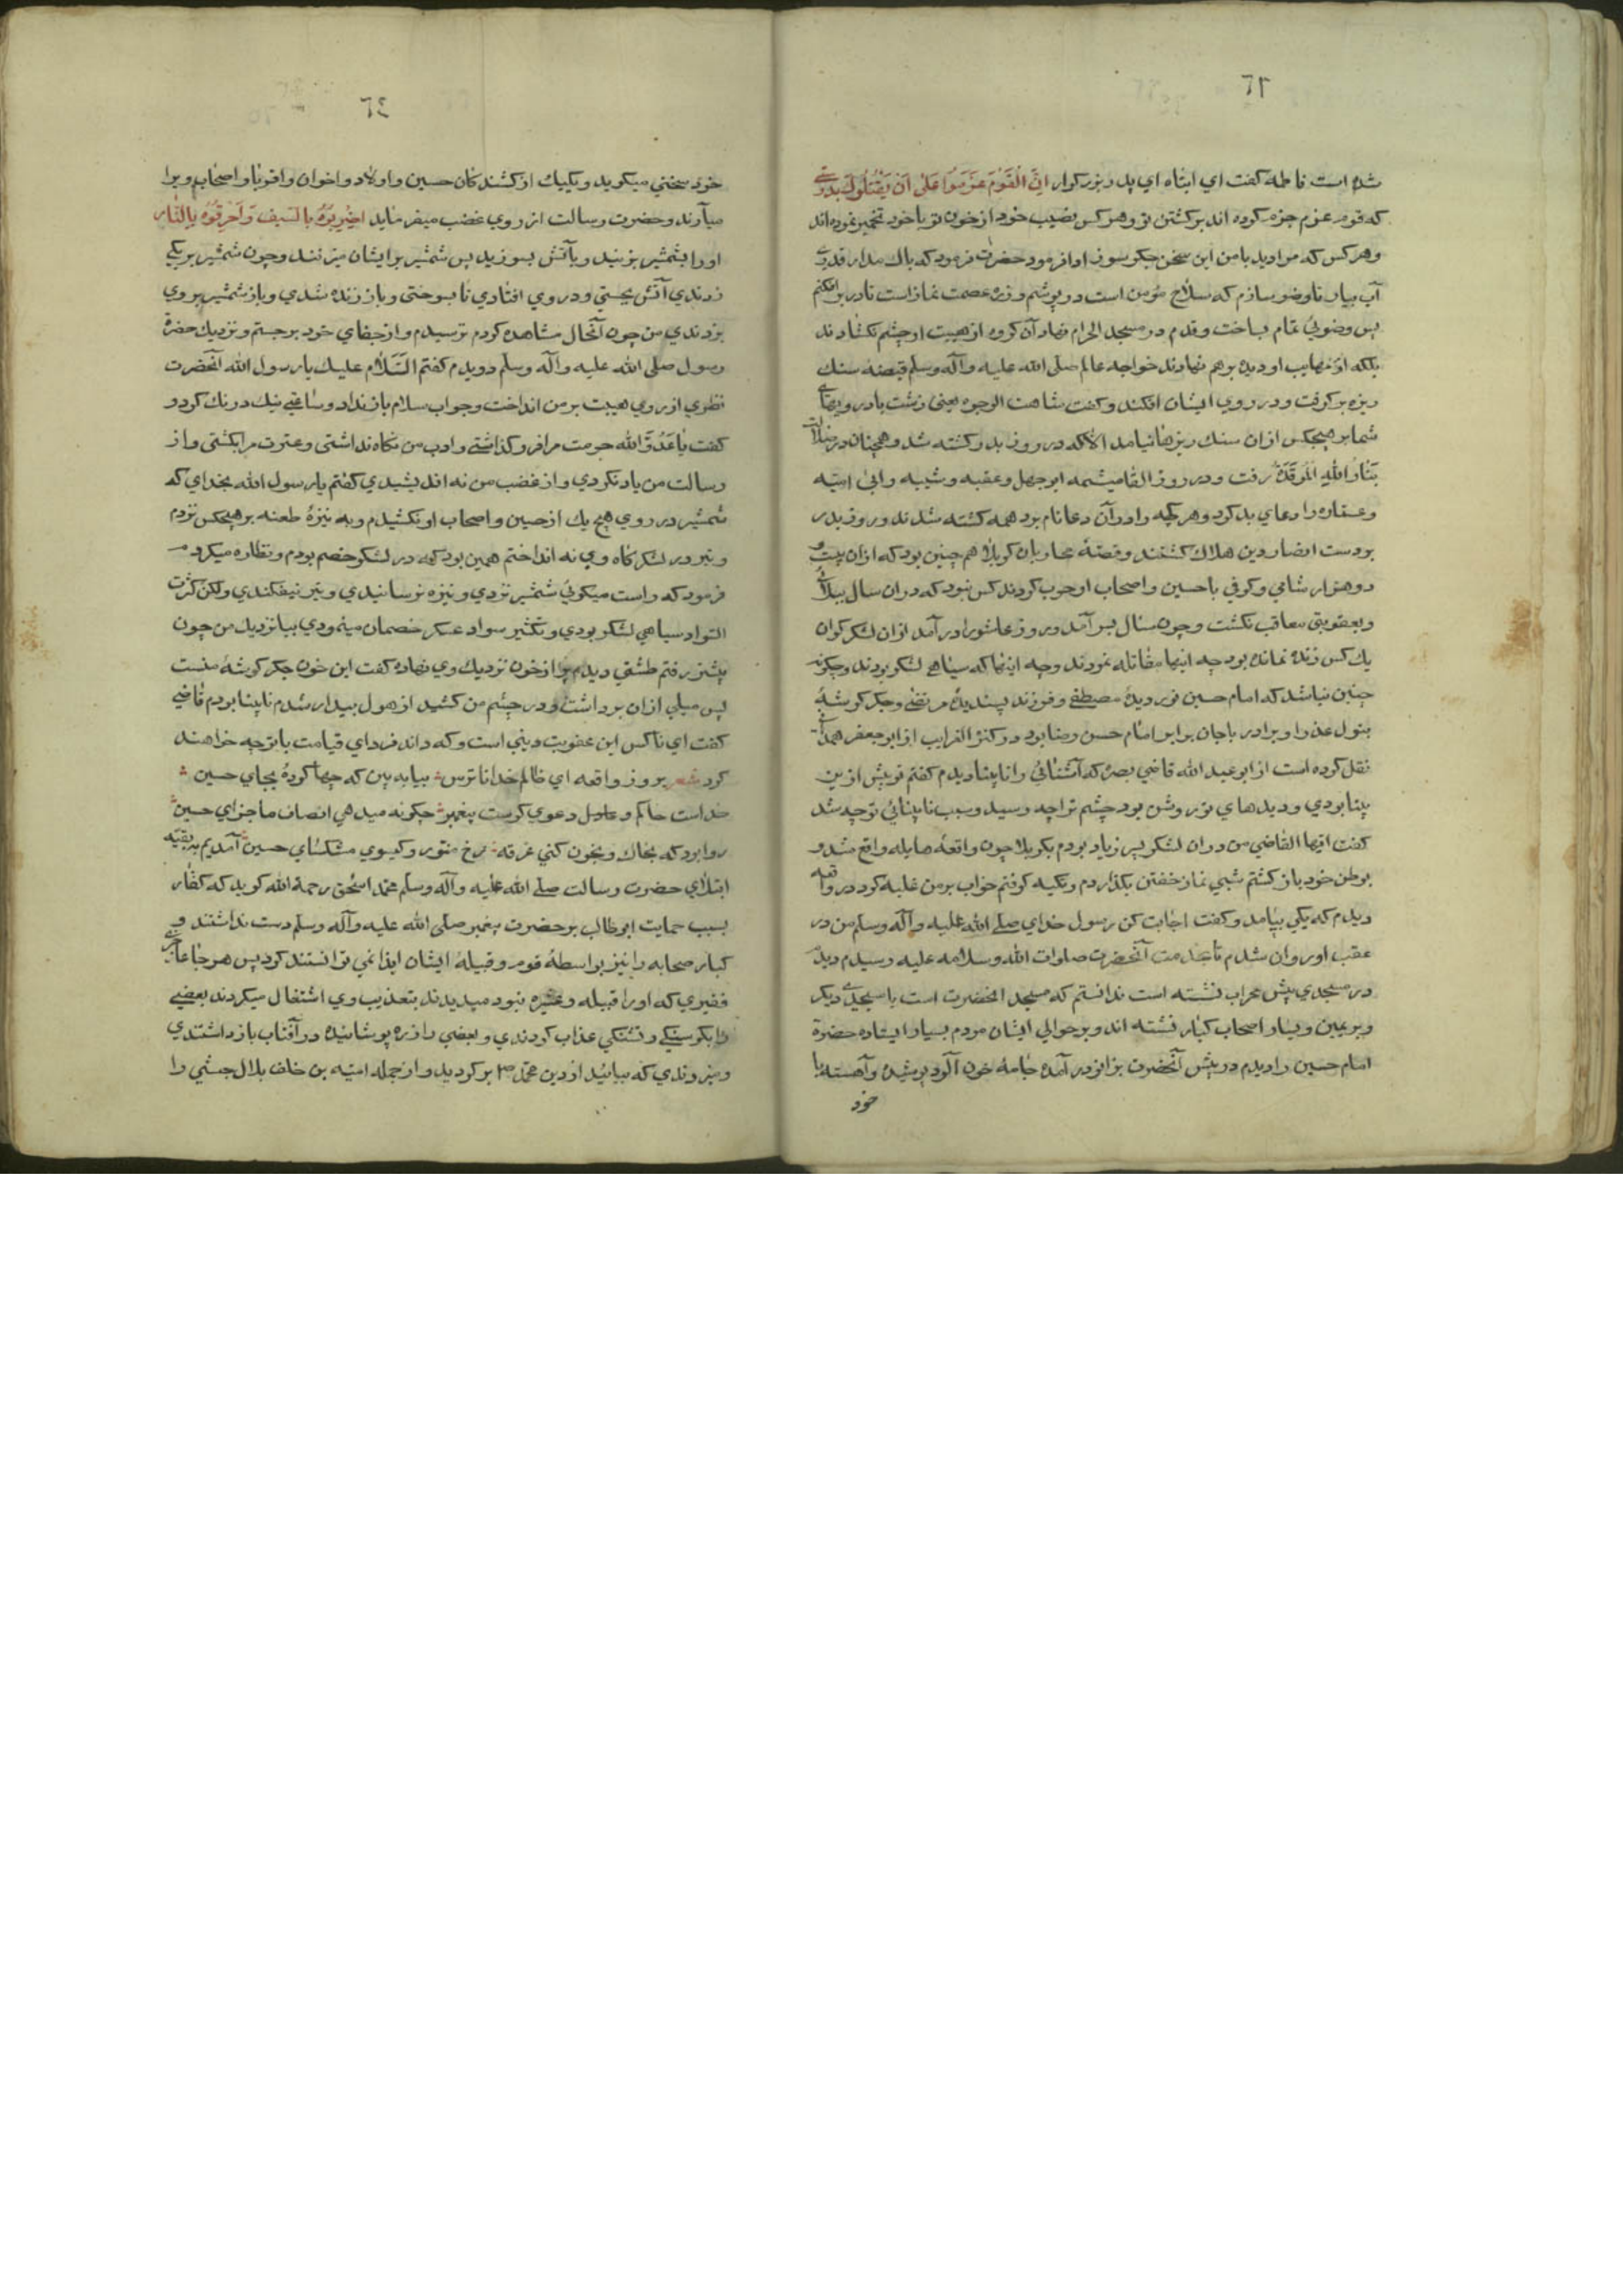 ٦٣
شده است فاطمه گفت اي ابتاه اي پدر بزرگوار اِنَّ الْقَوْمَ عَزَمُوا عَلٰى اَنْ يَقْتُلُوكَ بدرستي
که قوم عزم جزم کرده اند بر کشتن تو و هر کس نصيب خود از خون تو با خود تخمير نموده اند
و هر کس که مرا ديد با من اين سخن جگر سوز ادا فرمود حضرت فرمود که باك مدار قدري
آب بيار تا وضو سازم که سلاح مؤمن است در پوشم و زره عصمت نماز است تا در بر افکنم
پس وضوئي تمام بساخت و قدم در مسجد الحرام نهاد آن گروه از هيبت او چشم نگشادند
بلکه از نهايب او ديده بر هم نهادند خواجه عالم صلى الله عليه وآله وسلم قبضه سنك
ريزه بر گرفت و در روي ايشان افکند و گفت شاهت الوجوه يعنى زشت باد رويهاي
شما بر هيچکس ازان سنك ريزها نيامد الا که در روز بدر کشته شد و همچنان در ضلالت
بَنَارُ اللهِ الْمُوقَدَةُ رفت و در روز القا ميشمه ابو جهل و عقبه و شيبه و ابى اميّه
و عماره را دعاي بد کرد و هر که را در آن دعا نام بود همه کشته شدند و روز بدر
بر دست انصار دين هلاك گشتند و قصهٔ محاربان کربلا هم چنين بود که ازان بيست و
دو هزار شامي و کوفي با حسين و اصحاب او حرب کردند کس نبود که دران سال ببلائي
و بعقوبتى معاقب نگشت و چون سال بسر آمد و روز عاشورا در آمد ازان لشکر گران
يك کس زنده نمانده بود چه اينها مقاتله نمودند و چه اينها که سياهي لشکر بودند و چگونه
چنين نباشد که امام حسين نور ديدهٔ مصطفي و فرزند پسنديدهٔ مرتضي و جگر گوشهٔ
بتول عذرا و برادر با جان برابر امام حسن رضا بود در کنز الغرايب از ابو جعفر همداني
نقل کرده است از ابو عبد الله قاضي بصره که آشنائي را نابينا ديدم گفتم تو پيش ازين
بينا بودي و ديدهاي تو روشن بود چشم ترا چه رسيد و سبب نابينائي تو چه شد
گفت ايّها القاضي من دران لشکر پسر زياد بودم بکربلا چون واقعهٔ هايله واقع شد و
بوطن خود باز گشتم شبي نماز خفتن بگذاردم و تکيه گرفتم خواب بر من غلبه کرد در واقعه
ديدم که يکي بيامد و گفت اجابت کن رسول خداي صلى الله عليه وآله وسلم من در
عقب او روان شدم تا بخدمت آنحضرت صلوات الله وسلامه عليه رسيدم ديدم
در مسجدي پيش محراب نشسته است ندانستم که مسجد انحضرت است يا مسجدي ديگر
و بر يمين و يسار اصحاب کبار نشسته اند و بر حوالي ايشان مردم بسيار ايستاده حضرة
امام حسين را ديدم در پيش آنحضرت بزانو در آمده جامهٔ خون آلود پوشيده و آهسته با
خود
٦٤
خود سخني ميگويد و يکيك از کشندگان حسين و اولاد و اخوان و اقربا و اصحاب ويرا
ميآرند و حضرت رسالت از روي غضب ميفرمايد اضْرِبُوهُ بِالسَيف وَاَحْرِقُوهُ بِالنَّار
او را بشمشير بزنيد و بآتش بسوزيد پس شمشير بر ايشان ميزنند و چون شمشير بر يکي
زدندي آتش بجستي و در وي افتادي تا بسوختى و باز زنده شدي و باز شمشير بر وي
بزدندي من چون آنحال مشاهده کردم ترسيدم و از جفاي خود بر جستم و نزديك حضرة
رسول صلى الله عليه وآله وسلّم دويدم گفتم السَّلام عليك يا رسول الله آنحضرت
نظري از روي هيبت بر من انداخت و جواب سلام باز نداد و ساعتي نيك درنك کرد و
گفت يَا عَدُوَّ الله حرمت مرا فرو گذاشتي و ادب من نگاه نداشتى و عترت مرا بکشتى و از
رسالت من ياد نکردي و از غضب من نه انديشيدي گفتم يا رسول الله بخداي که
شمشير در روي هيچ يك از حسين و اصحاب او نکشيدم و به نيزهٔ طعنه بر هيچکس نزدم
و تير در لشکرگاه وي نه انداختم همين بود که در لشکر خصم بودم و نظاره ميکردم
فرمود که راست ميگوئي شمشير نزدي و نيزه نرسانيدي و تير نيفکندي ولکن کثرت
السواد سياهي لشکر بودي و تکثير سواد عسکر خصمان مينمودي بيا نزديك من چون
پيشتر رفتم طشتي ديدم پر از خون نزديك وي نهاده گفت اين خون جگر گوشهٔ منست
پس ميلي ازان برداشت و در چشم من کشيد از هول بيدار شدم نابينا بودم قاضي
گفت اي ناکس اين عقوبت دنيي است و که داند فرداي قيامت با تو چه خواهند
کرد شعر بروز واقعه اي ظالم خدا ناترس بيا ببين که چها کردهٔ بجاي حسين
خداست حاکم و عادل دعوي گرست پيغمبر چگونه ميدهي انصاف ماجراي حسين
روا بود که بخاك و بخون کني غرقه رخ منور و گيسوي مشکساي حسين آمديم بر بقيّه
ابتلاي حضرت رسالت صلى الله عليه وآله وسلّم محمد اسحق رحمة الله گويد که کفار
بسبب حمايت ابو طالب بر حضرت پيغمبر صلى الله عليه وآله وسلم دست نداشتند و
کبار صحابه را نيز بواسطهٔ قوم و قبيلهٔ ايشان ايذا نمي توانستند کرد پس هر جا عاجزي
فقيري که او را قبيله و عشيره نبود ميديدند بتعذيب وي اشتغال ميکردند بعضي
را بگرسنگي و تشنگي عذاب کردندي و بعضي را زره پوشانيده در آفتاب باز داشتندي
و ميزدندي که بيائيد از دين محمد صم برگرديد و از جمله اميّه بن خلف بلال حبشي را